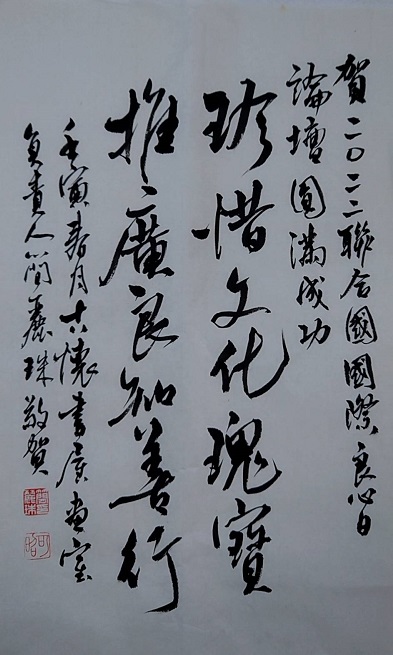 賀二〇二二聯合國國際良心日
論壇圓滿成功
珍惜文化瑰寶
推廣良知善行
壬寅春月十六懷書居畫室
負責人簡麗珠敬賀